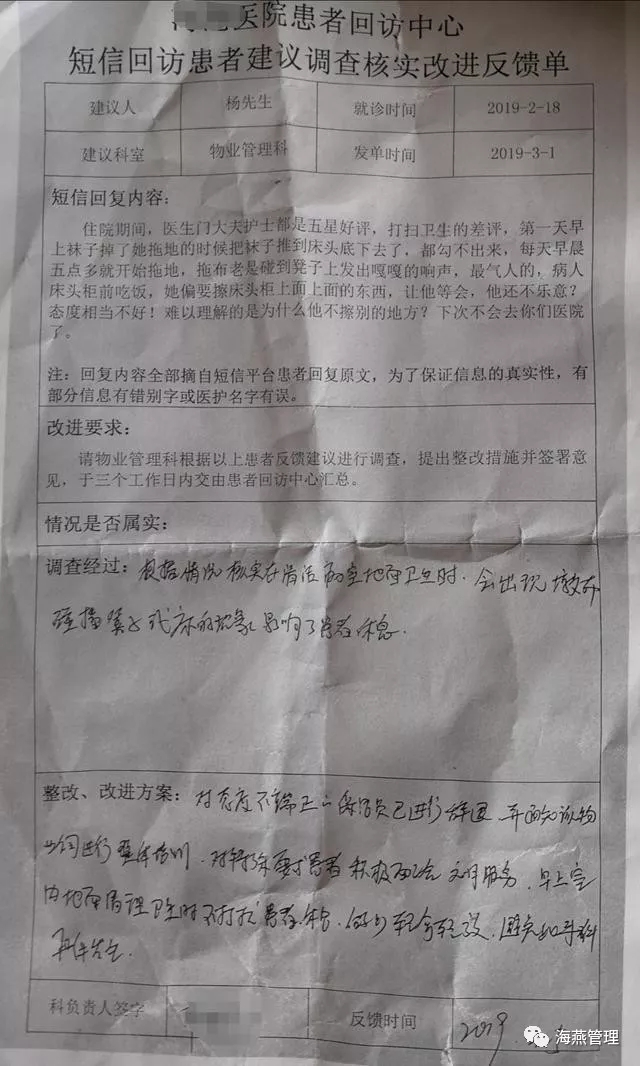 医院患者回访中心
短信回访患者建议调查核实改进反馈单
建议人 杨先生 就诊时间 2019-2-18
建议科室 物业管理科 发单时间 2019-3-1
短信回复内容：
住院期间，医生门大夫护士都是五星好评，打扫卫生的差评，第一天早
上袜子掉了她拖地的时候把袜子推到床头底下去了，都勾不出来，每天早晨
五点多就开始拖地，拖布老是碰到凳子上发出嘎嘎的响声，最气人的，病人
床头柜前吃饭，她偏要擦床头柜上面上面的东西，让他等会，他还不乐意？
态度相当不好！难以理解的是为什么他不擦别的地方？下次不会去你们医院
了。
注：回复内容全部摘自短信平台患者回复原文，为了保证信息的真实性，有
部分信息有错别字或医护名字有误。
改进要求：
请物业管理科根据以上患者反馈建议进行调查，提出整改措施并签署意
见，于三个工作日内交由患者回访中心汇总。
情况是否属实：
调查经过：根据情况核实在清洁病室地面卫生时，会出现墩布
碰撞凳子或床的现象影响了患者休息.
整改、改进方案：对态度不端正的保洁员已进行辞退 并通知该物
业公司进行整体培训，对 要求患者积极配合 文明服务，早上室
内地面清理卫生时不打扰患者休息，做到轻拿轻放，避免此事件
再发生.
科负责人签字 反馈时间 2019
海燕管理